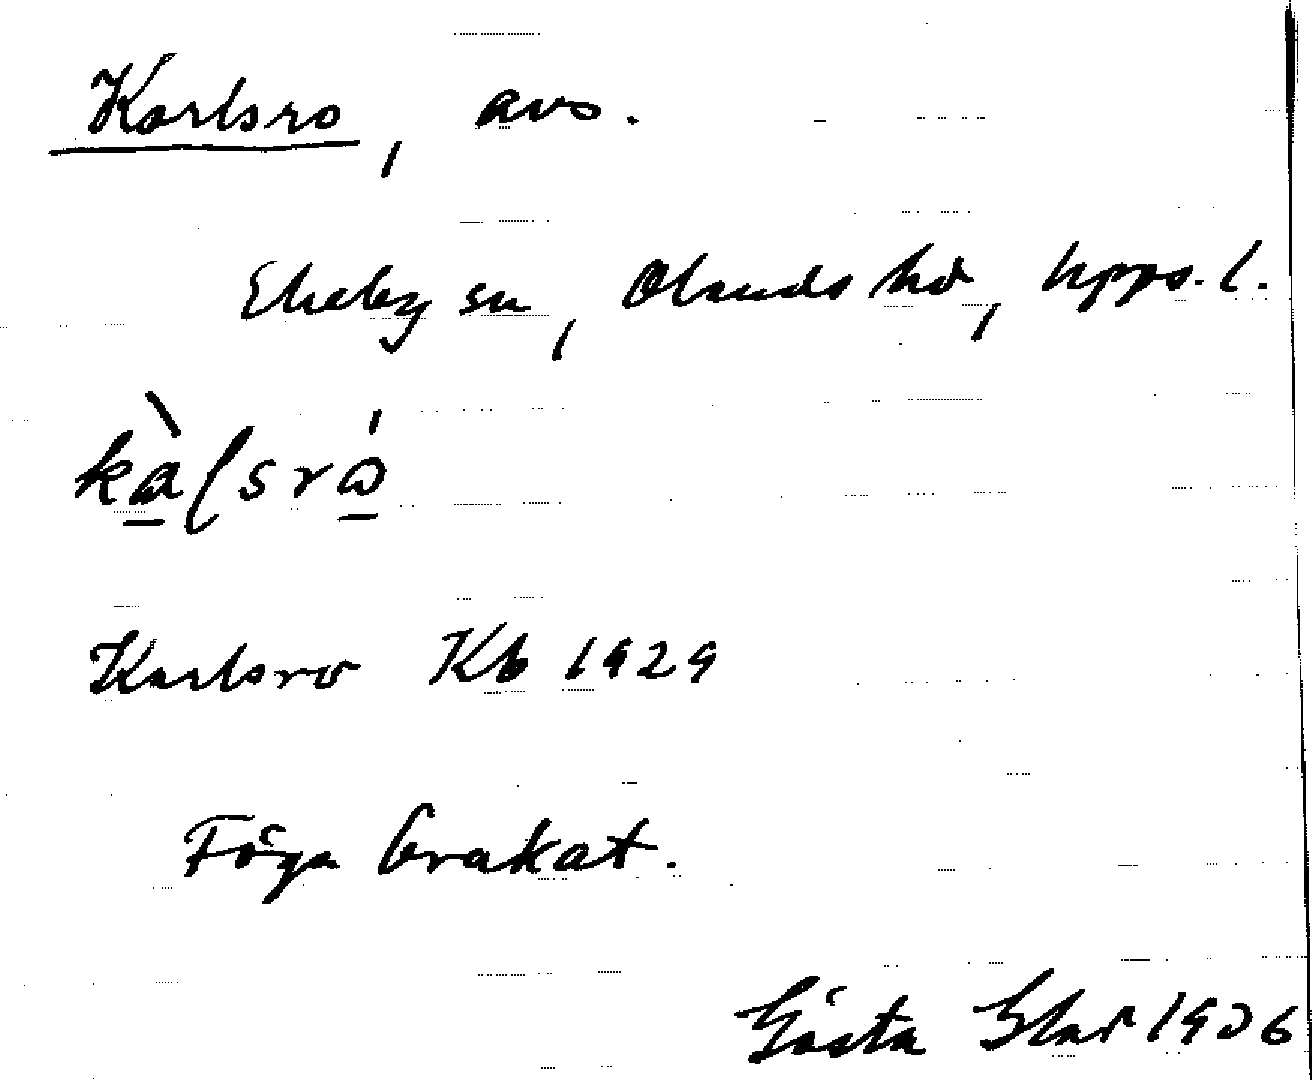 Karlsro, avs.
Ekeby sn, Olands hd, Upps. l.
kàlsrò
Karlsro Kb 1929
Föga brukat.
Gösta 1936